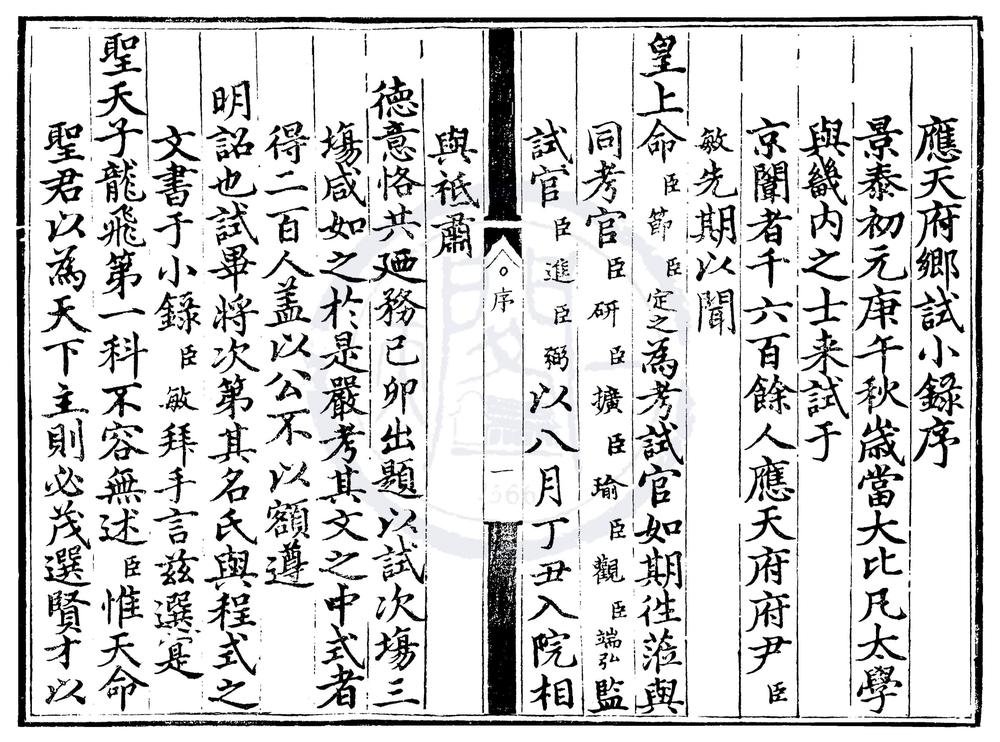 應天府鄉試小錄序
景泰初元庚午秋歲當大比凡太學
與畿內之士来試于
京闈者千六百餘人應天府府尹臣
敏先期以聞
皇上命臣節臣定之為考試官如期徃蒞與
同考官臣研臣擴臣瑜臣觀臣端弘監
試官臣進臣弼以八月丁丑入院相
序
一
與祗肅
德意恪共廼務己卯出題以試次塲三
塲咸如之於是嚴考其文之中式者
得二百人盖以公不以額遵
明詔也試畢將次第其名氏與程式之
文書于小錄臣敏拜手言兹選寔
聖天子龍飛第一科不容無述臣惟天命
聖君以為天下主則必茂選賢才以